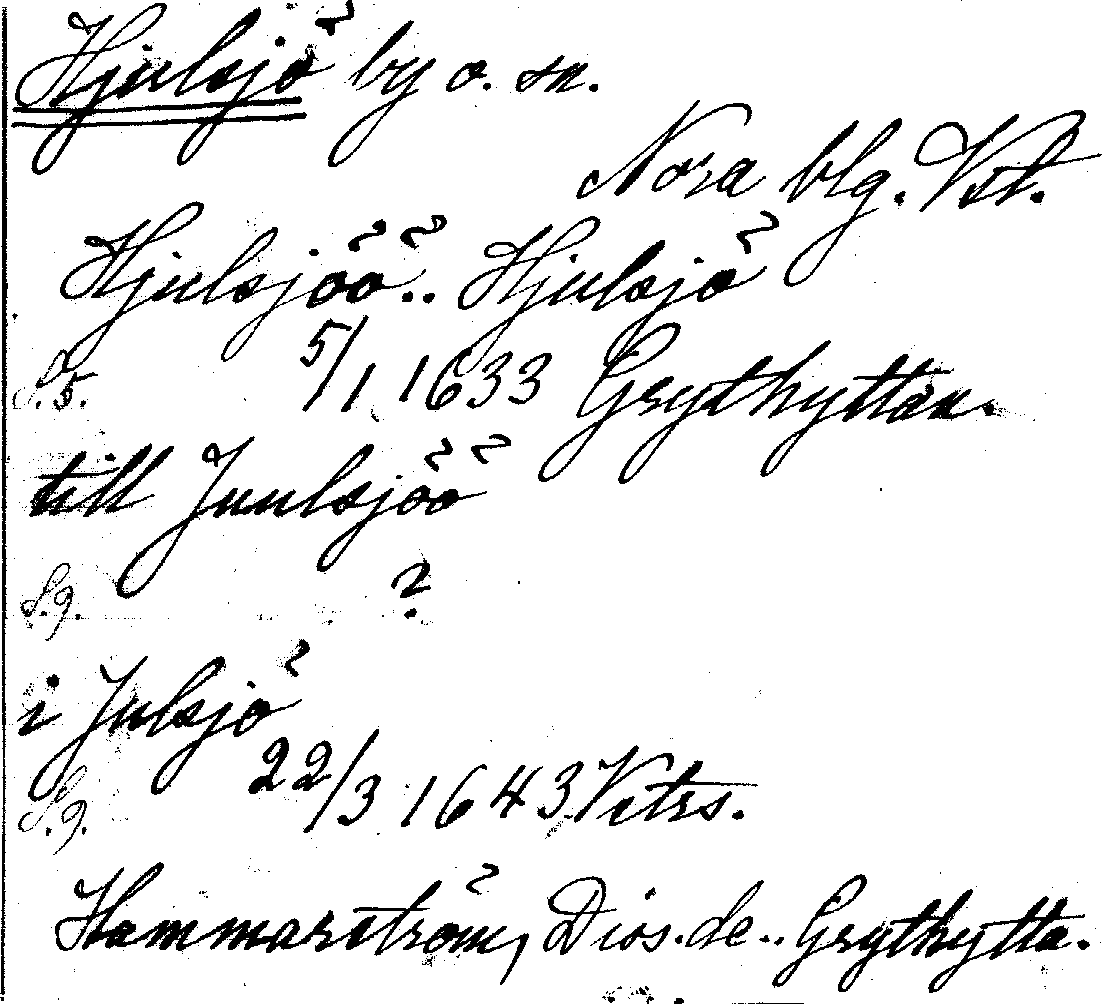 Hjulsjö by o. sn.
Nora blg. Vstl.
Hjulsjöö.. Hjulsjö
S. 5. 5/1 1633 Grythyttan.
till Juulsjöö
S. 9. ?
i Julsjö
S. 9. 22/3 1643 Vitrs.
Hammarström, Diss. de.. Grythytta.